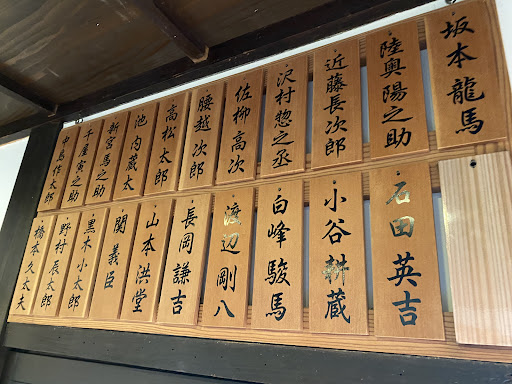 坂本龍馬
陸奥陽之助
近藤長次郎
沢村惣之丞
佐柳高次
腰越次郎
高松太郎
池内蔵太
新宮馬之助
千屋寅之助
中島作太郎
石田英吉
小谷耕蔵
白峰駿馬
渡辺剛八
長岡謙吉
山本洪堂
関義臣
黒木小太郎
野村辰太郎
橋本久太夫